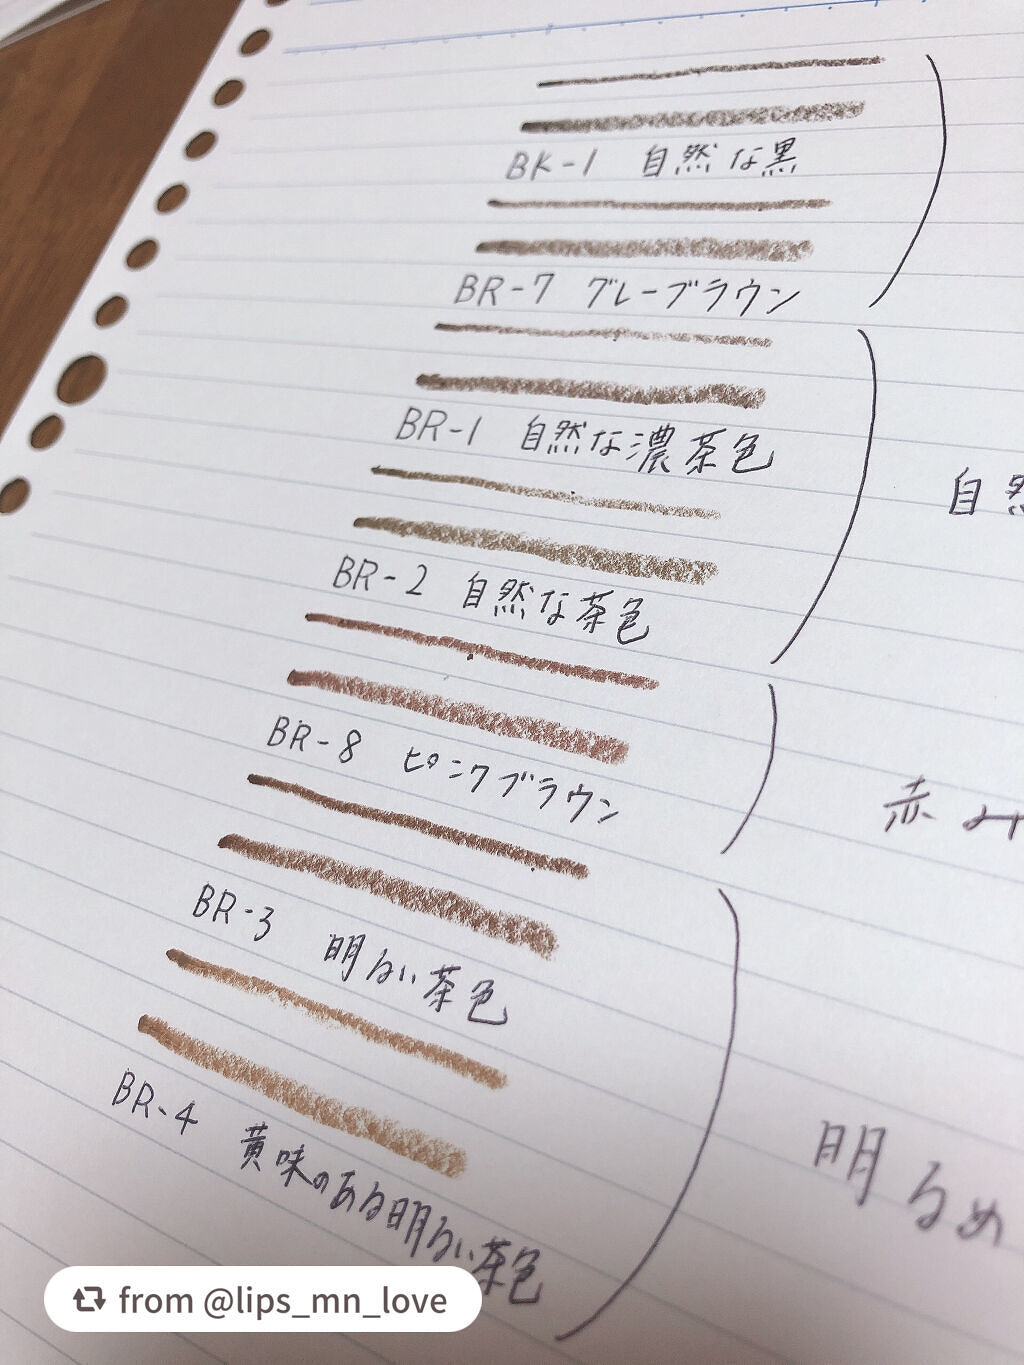 BK-1 自然な黒
BR-7 グレーブラウン
BR-1 自然な濃茶色
BR-2 自然な茶色
自然
BR-8 ピンクブラウン
赤み
BR-3 明るい茶色
BR-4 黄味のある明るい茶色
明るめ
from @lips_mn_love